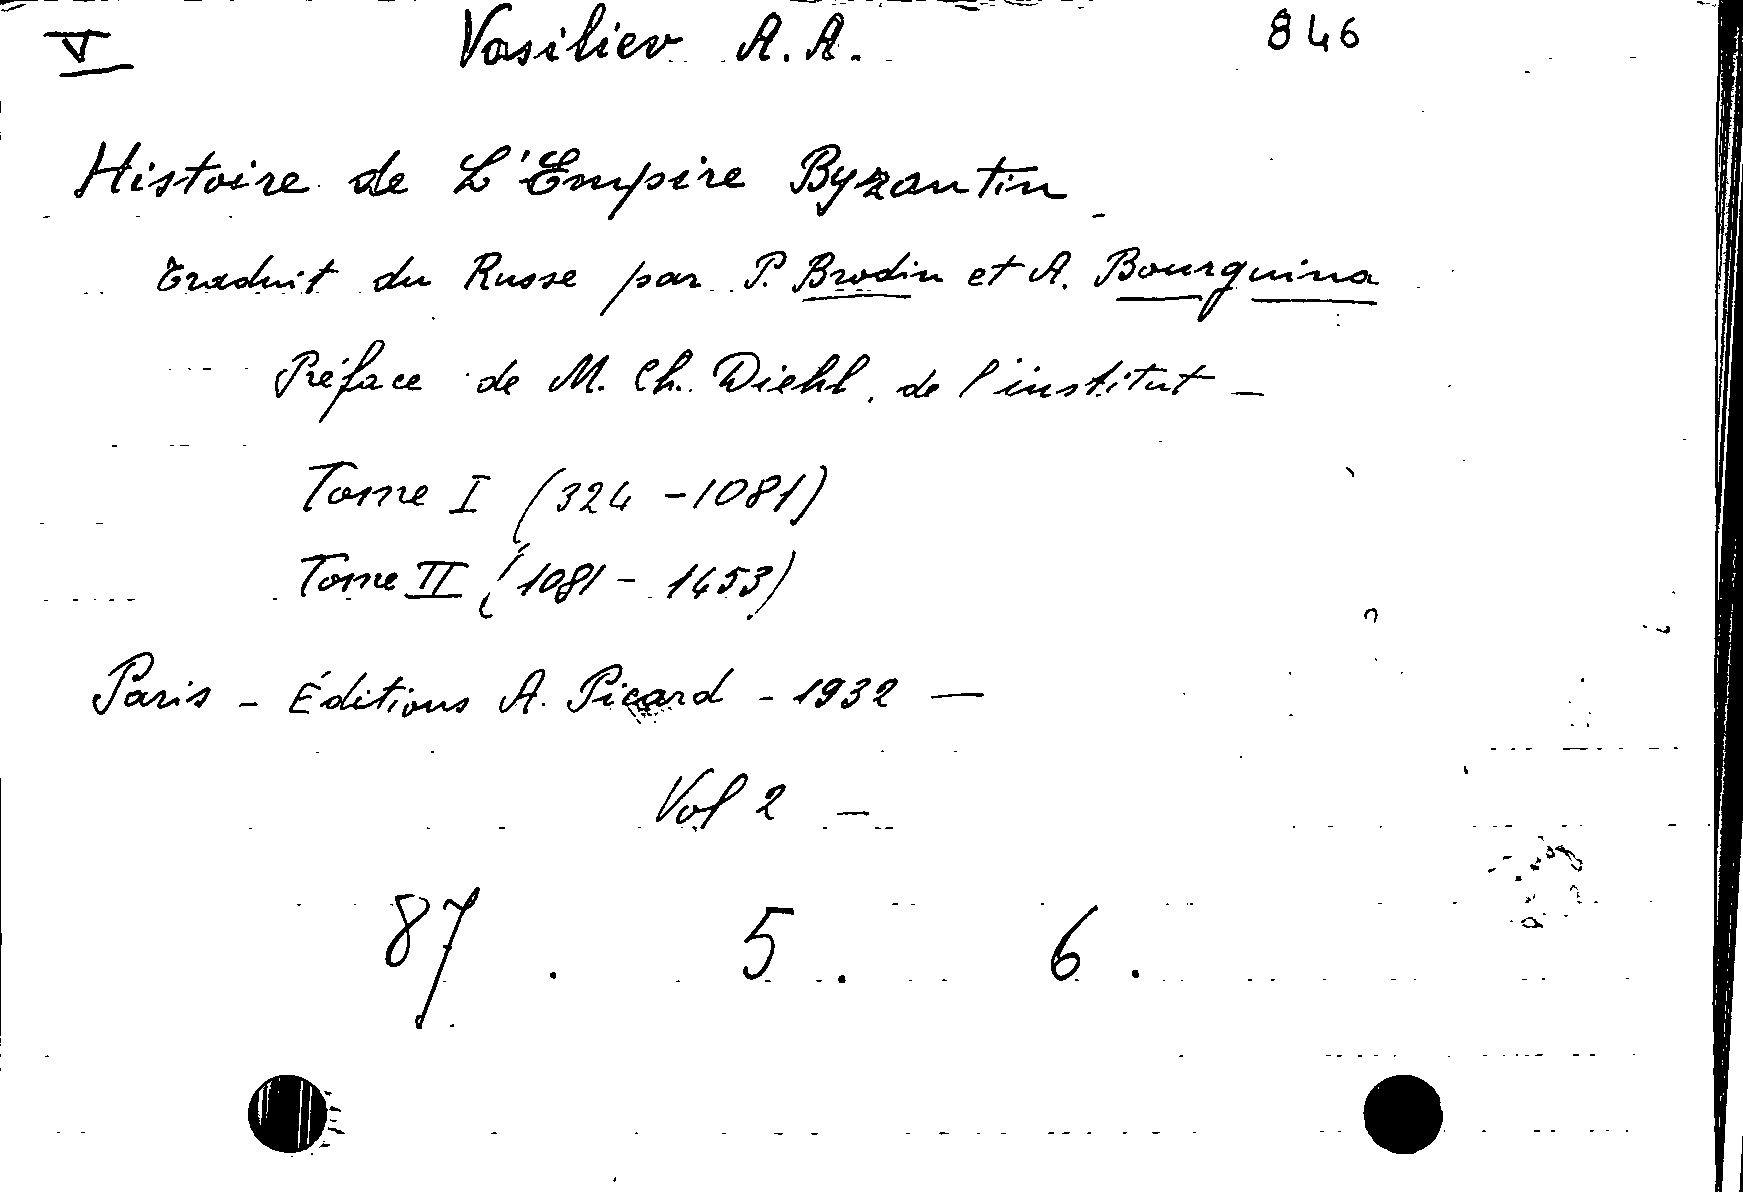 V Vasiliev A. A. 846
Histoire de L'Empire Byzantin
Traduit du Russe par P. Brodin et A. Bourguina
Préface de M. Ch. Diehl, de l'institut –
Tome I (324 – 1081)
Tome II (1081 – 1453)
Paris – Éditions A. Picard – 1932 —
Vol 2 –
87 . 5 . 6 .